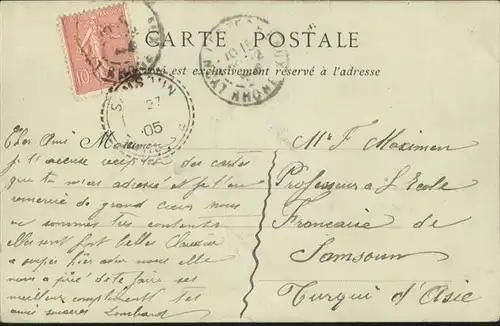 CARTE POSTALE
est exclusivement réservé à l'adresse
10
LYON
RHONE
27
05
Cher Ami Maximen
je t'accuse réception des cartes
que tu m'as adressé et je t'en
remercie de grand cœur nous
en sommes très contents
elles sont fort belles
a soupé hier avec nous elle
nous a prié de te faire ses
meilleurs compliment tes
amis sincères Lombard
Mr F Maximen
Professeur a L'Ecole
Francaise de
Samsoun
Turqui d'Asie